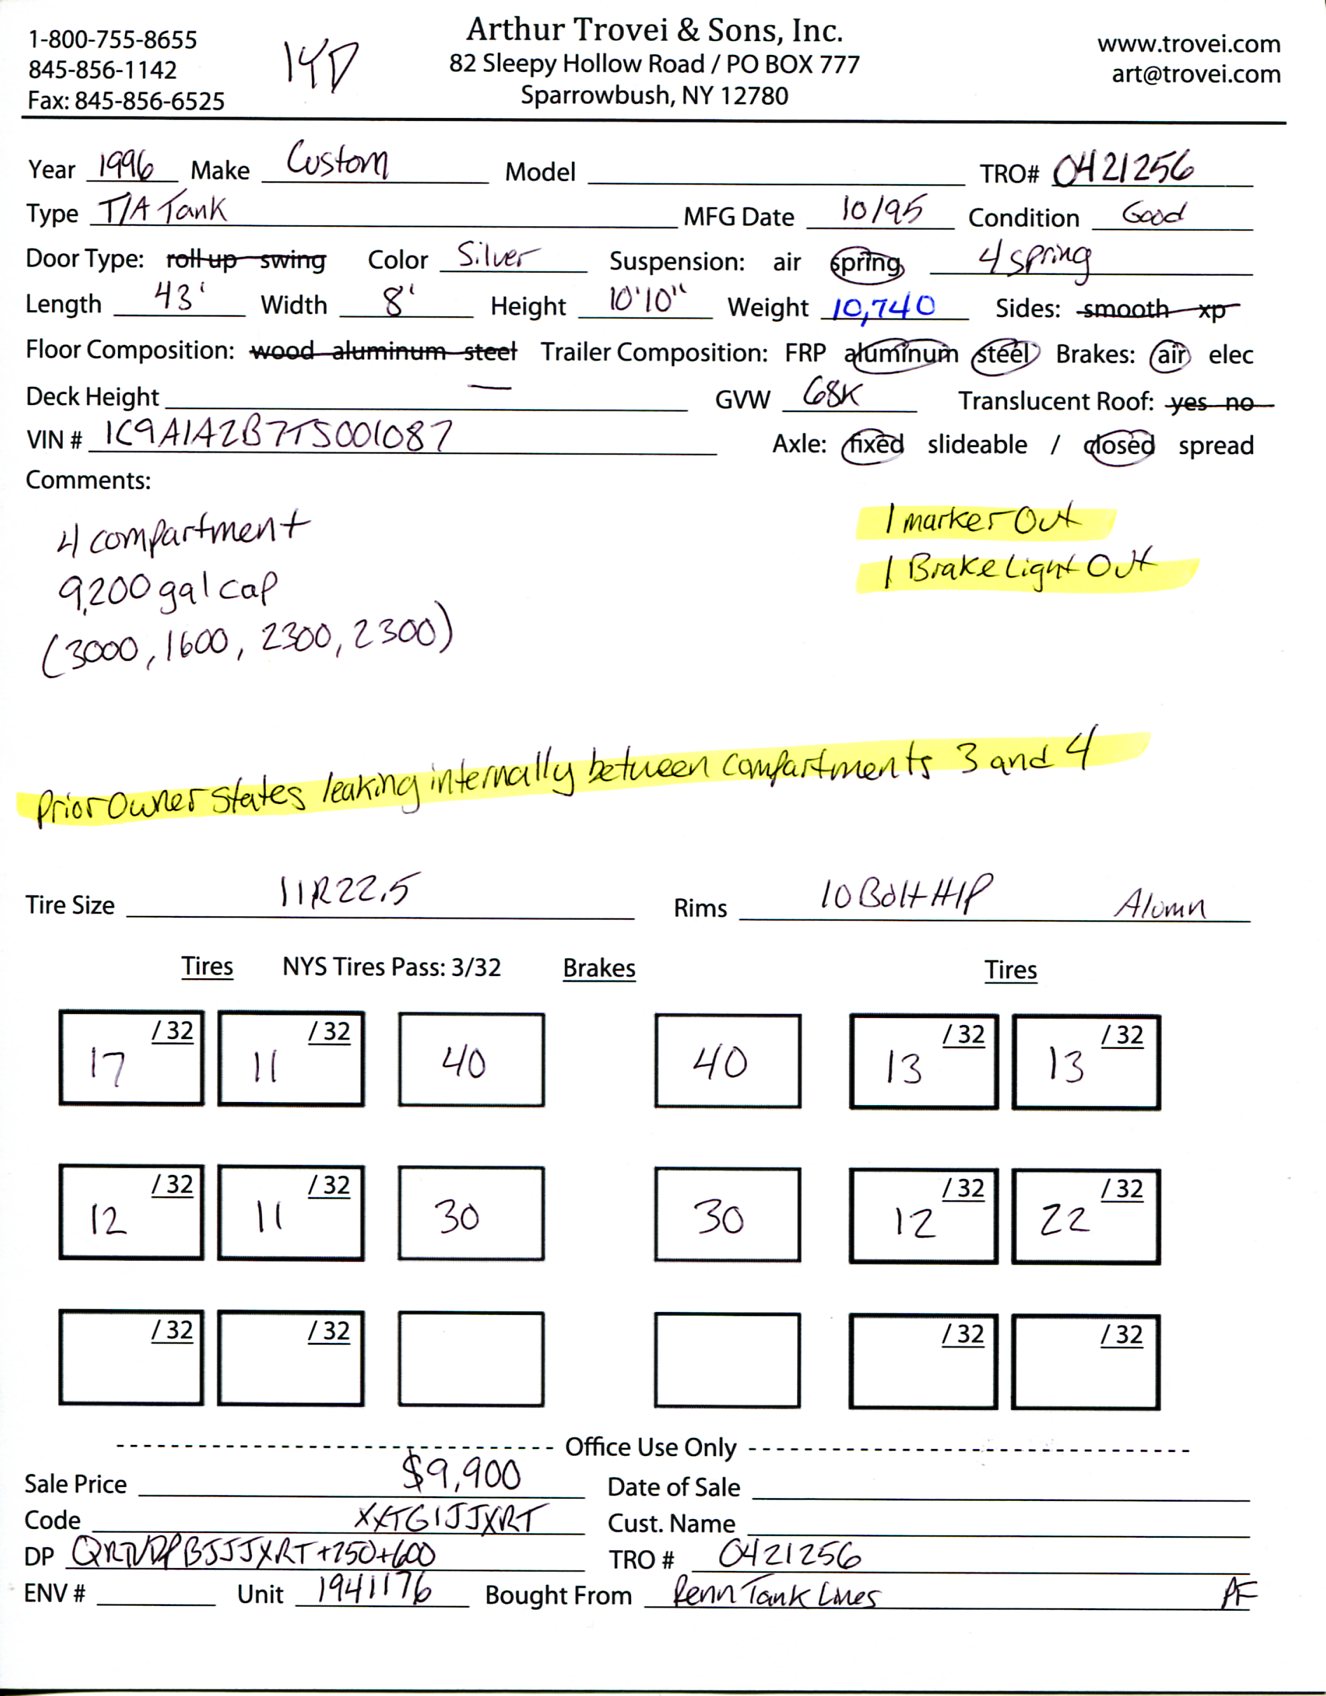 1-800-755-8655
845-856-1142
Fax: 845-856-6525
14D
Arthur Trovei & Sons, Inc.
82 Sleepy Hollow Road / PO BOX 777
Sparrowbush, NY 12780
www.trovei.com
art@trovei.com
Year 1996 Make Custom Model TRO# 0421256
Type T/A Tank MFG Date 10/95 Condition Good
Door Type: roll up swing Color Silver Suspension: air spring 4 spring
Length 43' Width 8' Height 10'10" Weight 10,740 Sides: smooth xp
Floor Composition: wood aluminum steel Trailer Composition: FRP aluminum steel Brakes: air elec
Deck Height — GVW 68K Translucent Roof: yes no
VIN # 1C9A1A2B7TS001087 Axle: fixed slideable / closed spread
Comments:
4 compartment
9,200 gal cap
(3000, 1600, 2300, 2300)
1 marker Out
1 Brake Light Out
Prior Owner states leaking internally between compartments 3 and 4
Tire Size 11R22.5 Rims 10 Bolt H/P Alumn
Tires NYS Tires Pass: 3/32 Brakes Tires
17 /32 11 /32 40 40 13 /32 13 /32
12 /32 11 /32 30 30 12 /32 22 /32
/32 /32 /32 /32
Office Use Only
Sale Price $9,900 Date of Sale
Code XXTGIJJXRT Cust. Name
DP +250+600 TRO # 0421256
ENV # Unit 1941176 Bought From Penn Tank Lines AF